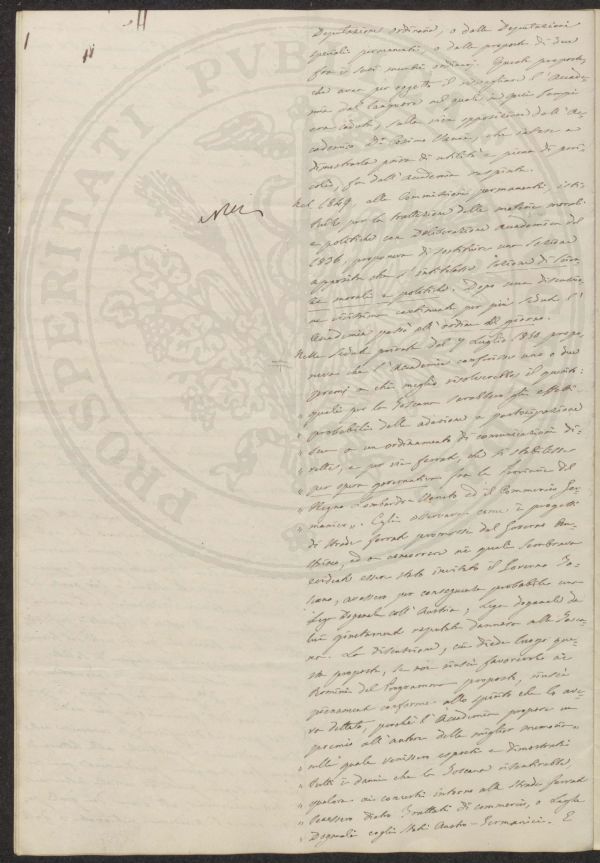 Deputazione ordinaria, o dalle Deputazioni
speciali permanenti, o dalle proposte di due
fra i suoi membri ordinarj. Queste proposte,
che avean per oggetto il risvegliare l'Accade-
mia dal languore nel quale in quei tempi
era caduta, sulla viva opposizione dell'Ac-
cademico Di Cosimo Vanni, che valse a
dimostrarle prive di utilità e piene di peri-
colo, fu dall'Accademia respinta.
Nel 1849, alle Commissioni permanenti, isti-
tuite per la trattazione delle materie morali
e politiche con Deliberazione Accademica del
1836, proponeva di sostituire una Sezione
apposita che s'intitolasse Sezione di Scien-
ze morali e politiche. Dopo una discussio-
ne vivissima continuata per più sedute l'
Accademia passò all'ordine del giorno.
Nella Seduta privata del 7 Luglio 1850 propo-
neva che l'Accademia conferisse uno o due
premj a chi meglio risolverebbe il quesito:
" quali per la Toscana sarebbero gli effetti
" probabili della adesione e partecipazione
" sua a un ordinamento di comunicazioni di-
" rette, e per vie ferrate, che si stabilisse
" per opera governativa fra le provincie del
" Regno Lombardo Veneto ed il Commercio Ger-
" manico". Egli osservava come i progetti
di Strade ferrate promosse dal Governo Au-
striaco, ed a concorrere nei quali sembrava
evidente essere stato invitato il Governo To-
scano, avessero per conseguenza probabile una
Lega Doganale coll'Austria; Lega doganale da
lui giustamente reputata dannosa alla Tosca-
na. La discussione, cui diede luogo que-
sta proposta, se non riuscì favorevole ai
termini del Programma proposto, riuscì
pienamente conforme allo spirito che lo ave-
va dettato, perchè l'Accademia propose un
premio all'autore della miglior memoria
" nella quale venissero esposti e dimostrati
" tutti i danni che la Toscana risentirebbe,
" qualora nei concerti intorno alle strade ferrate
" venissero dietro Trattati di commercio, o Leghe
" Doganali cogli Stati Austro-Germanici. E